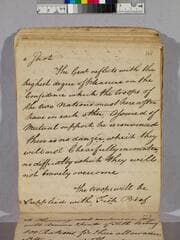 a Just
The Genl reflects with the
highest degree of pleasure on the
Confidence which the troops of
the two Nations must hereafter
have in each other. Assured of
Mutual support he is convinced
there is no danger which they
will not Chearfully encounter,
no difficulty which they will
not bravely overcome
The troops will be
Supplied with Fresh Beef